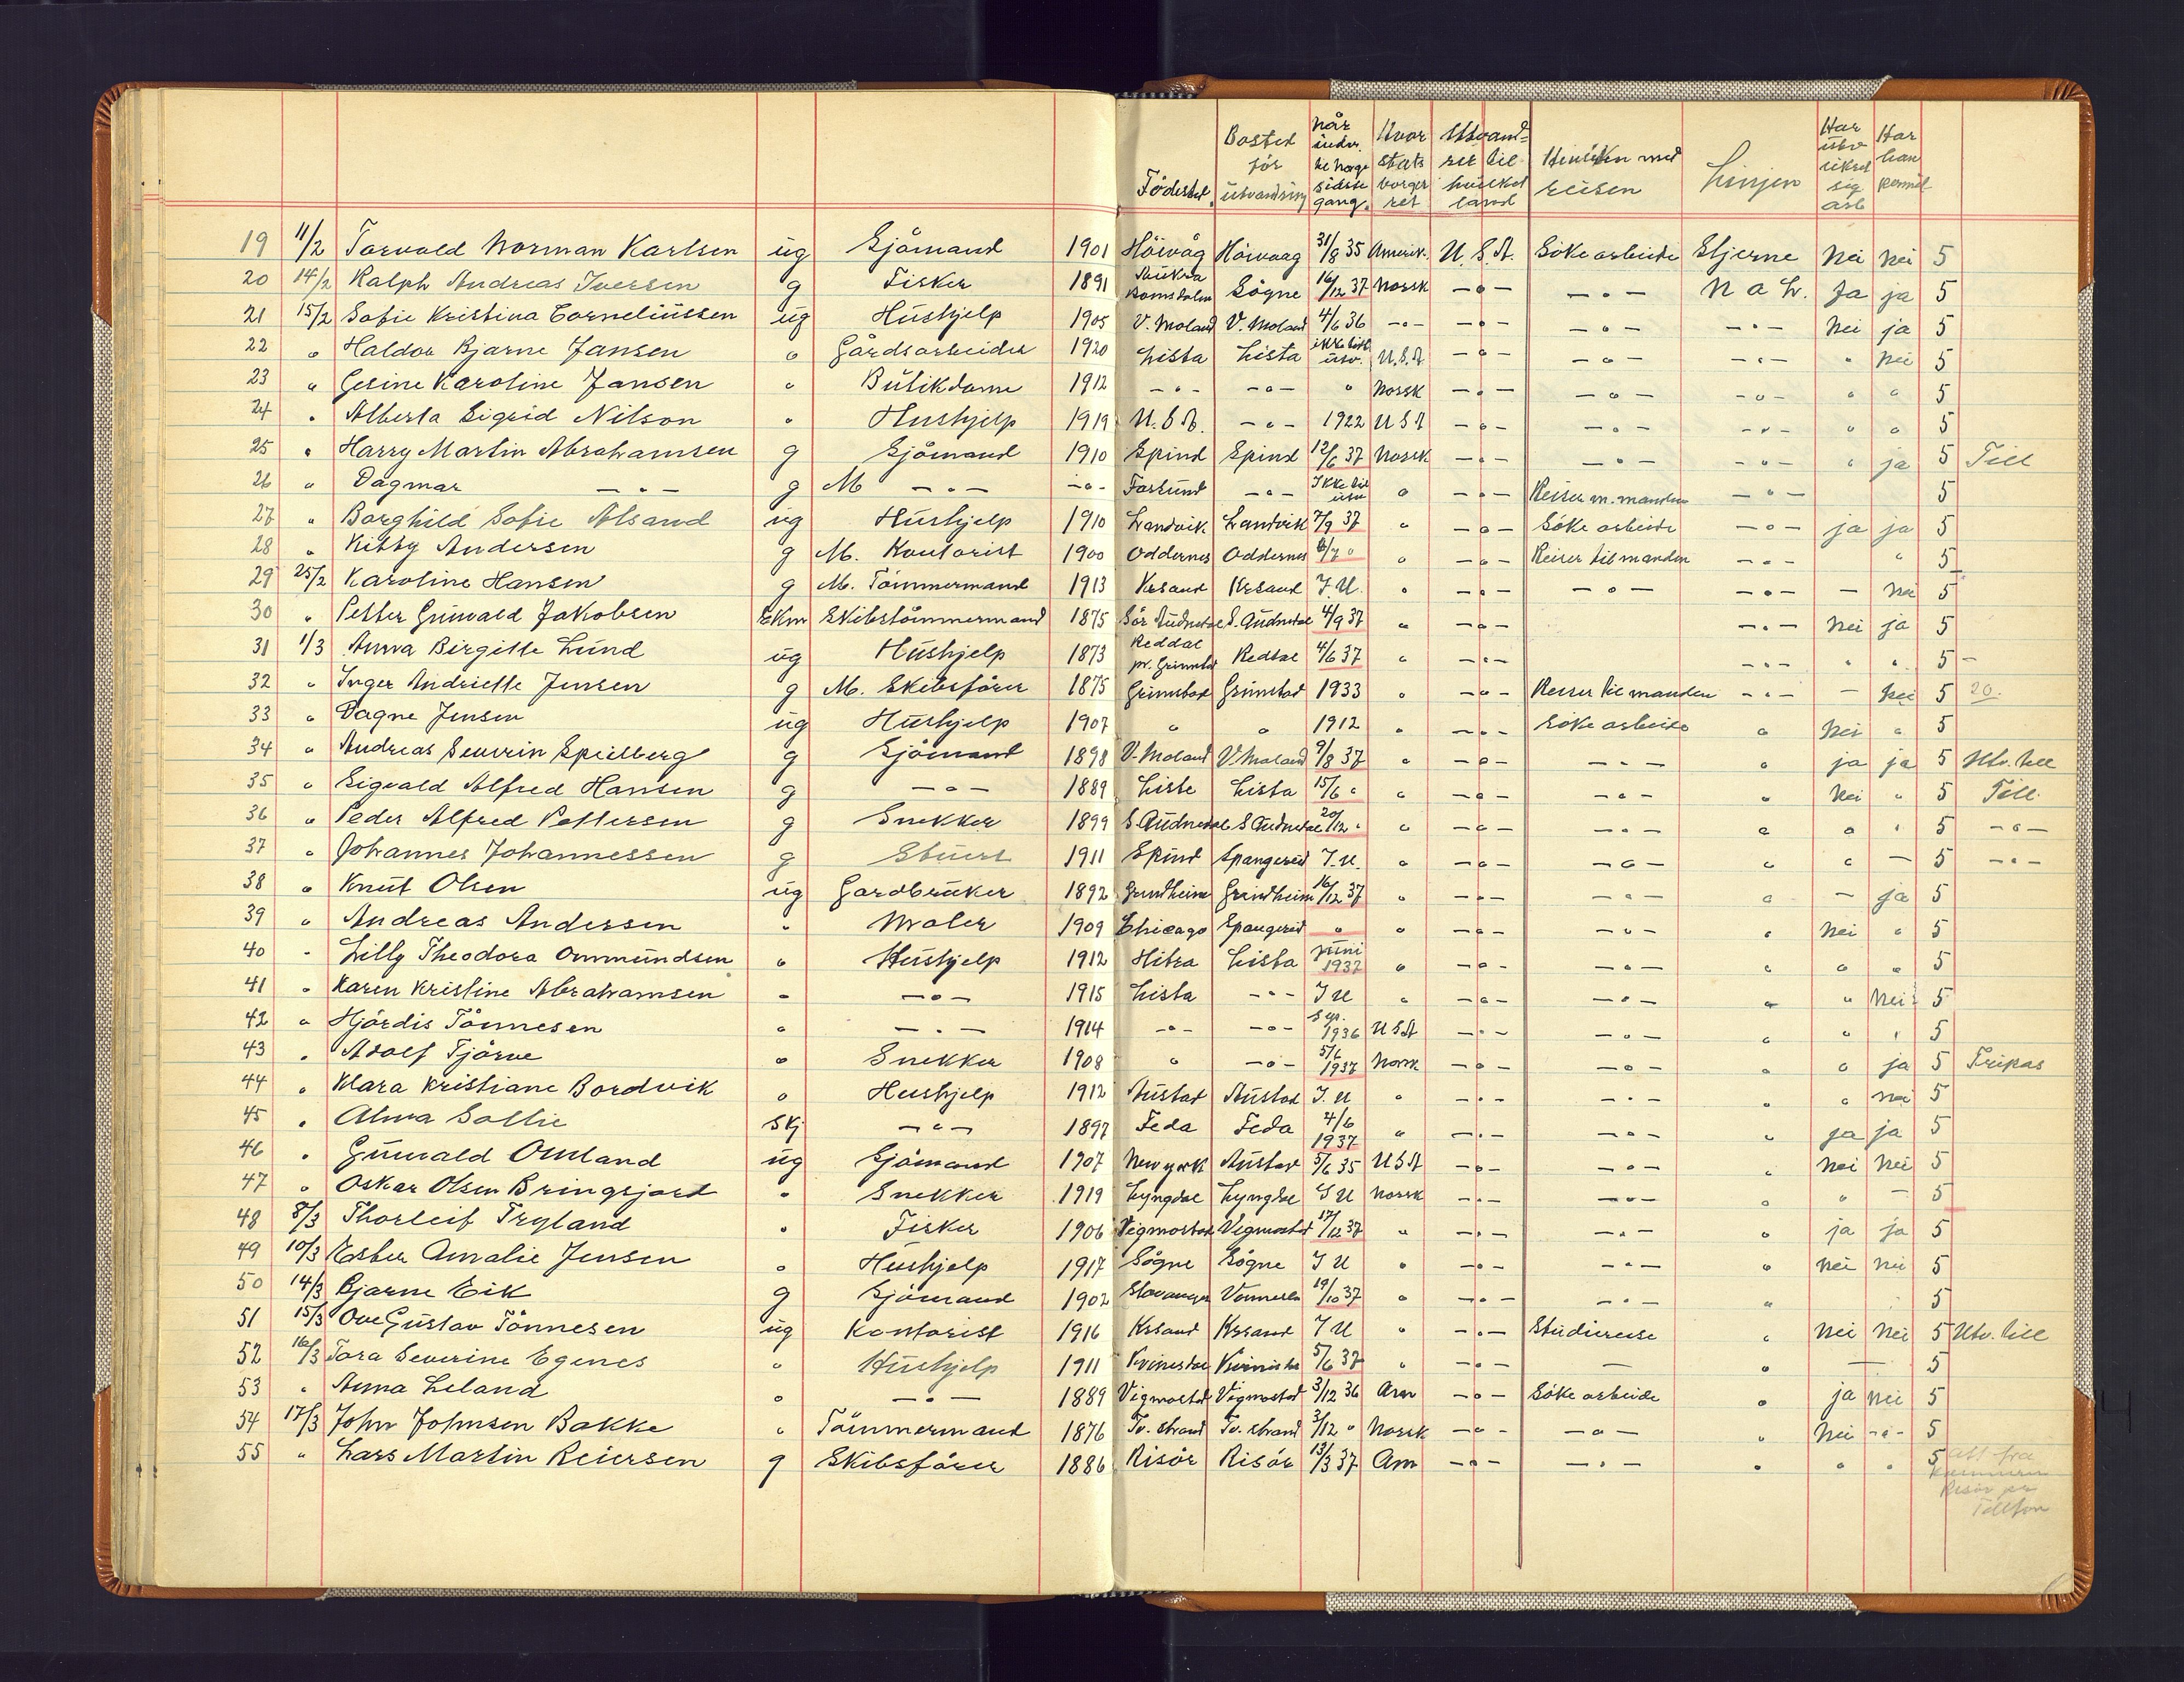 Födested Bosted för utvandring Når uvdr. ke norge sidste gang. Hvor stats borger ret Utvand- ret til hvilket land Hensikten med reisen Linjen Har utv sikret sig arb Har han permit
19 11/2 Torvald Norman Karlsen ug Sjömand 1901 Höivåg Höivaag 31/8 35 Amerik. U.S.A. Söke arbeide Stjerne Nei Nei 5
20 14/2 Ralph Andreas Iversen g Fisker 1891 Aukra Romsdalen Sögne 16/12 37 Norsk -"- -"- N a L. Ja ja 5
21 15/2 Sofie Kristina Corneliussen ug Hushjelp 1905 V. Moland V. Moland 4/6 36 -"- -"- -"- -"- Nei ja 5
22 " Haldor Bjarne Jansen " Gårdsarbeider 1920 Lista Lista ikke tidl. utv. U.S.A -"- -"- -"- " Nei 5
23 " Gesine Karoline Jansen " Butikdame 1912 -"- -"- " Norsk -"- -"- -"- " " 5
24 " Alberta Sigrid Nilson " Hushjelp 1919 U.S.A. -"- 1922 U S A -"- -"- -"- " " 5
25 " Harry Martin Abrahamsen g Sjömand 1910 Spind Spind 12/6 37 Norsk -"- -"- -"- " ja 5 Till
26 " Dagmar -"- g M -"- -"- Farsund -"- Ikke tid utv " -"- Reiser m. manden -"- 5
27 " Borghild Sofie Alsand ug Hushjelp 1910 Landvik Landvik 7/9 37 " -"- Söke arbeide -"- ja ja 5
28 " Kitty Andersen g M. Kontorist 1900 Oddernes Oddernes 6/7 " " -"- Reiser til manden -"- " 5
29 25/2 Karoline Hansen g M. Tömmermand 1913 Krsand Krsand I.U. " -"- -"- -"- - Nei 5
30 " Petter Gunvald Jakobsen Ekm Skibstömmermand 1875 Sör Audnedal S. Audnedal 4/9 37 " -"- -"- Nei ja 5
31 1/3 Anna Birgitte Lund ug Hushjelp 1873 Reddal pr. Grimstad Reddal 4/6 37 " -"- -"- " " 5 -
32 " Inger Andriette Jensen g M. Skibsförer 1875 Grimstad Grimstad 1933 " -"- Reiser til manden -"- - Nei 5 20.
33 " Dagne Jensen ug Hushjelp 1907 " " 1912 " -"- Söke arbeide " Nei " 5
34 " Andreas Severin Speilberg g Sjömand 1898 V. Moland V Moland 9/8 37 " -"- -"- " ja ja 5 Utv. till
35 " Sigvald Alfred Hansen g -"- 1889 Liste Lista 15/6 " " -"- -"- " Nei " 5 Till.
36 " Peder Alfred Pettersen g Snekker 1899 S. Audnedal S Audnedal 20/12 " " -"- -"- " " " 5 -"-
37 " Johannes Johannessen g Stuert 1911 Spind Spangereid I.U. " -"- -"- " " - 5 -"-
38 " Knut Olsen ug Gardbruker 1892 Grindheim Grindheim 16/12 37 " -"- -"- " - ja 5
39 " Andreas Andersen " Maler 1909 Chicago Spangereid " " -"- -"- " Nei " 5
40 " Lilly Theodora Ommundsen " Hushjelp 1912 Hitra Lista juni 1937 " -"- -"- " " " 5
41 " Karen Kristine Abrahamsen " -"- 1915 Lista -"- I U " -"- -"- " " Nei 5
42 " Hjördis Tönnesen " -"- 1914 -"- -"- 1936 U S A -"- -"- " " " 5
43 " Adolf Tjörve " Snekker 1908 " -"- 5/6 1937 Norsk -"- -"- " " ja 5 Fripas
44 " Klara Kristiane Bordvik " Hushjelp 1912 Austad Austad I.U " -"- -"- " " nei 5
45 " Alma Sollie Skj -"- 1897 Feda Feda 4/6 1937 " -"- -"- " ja ja 5
46 " Gunvald Omland ug Sjömand 1907 New york Austad 5/6 35 U S A -"- -"- " Nei Nei 5
47 " Oskar Olsen Bringsjord " Snekker 1919 Lyngdal Lyngdal I U Norsk -"- -"- " " - 5
48 8/3 Thorleif Tryland " Fisker 1906 Vigmostad Vigmostad 17/12 37 " -"- -"- " ja ja 5
49 10/3 Ester Amalie Jensen " Hushjelp 1917 Sögne Sögne I U " -"- -"- " Nei Nei 5
50 14/3 Bjarne Eik g Sjömand 1902 Stavanger Vennesla 19/10 37 " -"- -"- " 5
51 15/3 Ove Gustav Tönnesen ug Kontorist 1916 Krsand Krsand I U " -"- Studiereise " Nei Nei 5 Utv. till
52 16/3 Tora Severine Egenes " Hushjelp 1911 Kvinesdal Kvinesdal 5/6 37 " -"- - " - 5
53 " Anna Leland " -"- 1889 Vigmostad Vigmostad 3/12 36 Am -"- Söke arbeide " ja nei 5
54 17/3 John Johnsen Bakke " Tömmermand 1876 Tv. strand Tv. strand 3/12 " Norsk -"- -"- " Nei -"- 5
55 " Lars Martin Reiersen g Skibsförer 1886 Risör Risör 13/3 37 Am -"- -"- " " " 5 att fra
Risör pr
Telefon